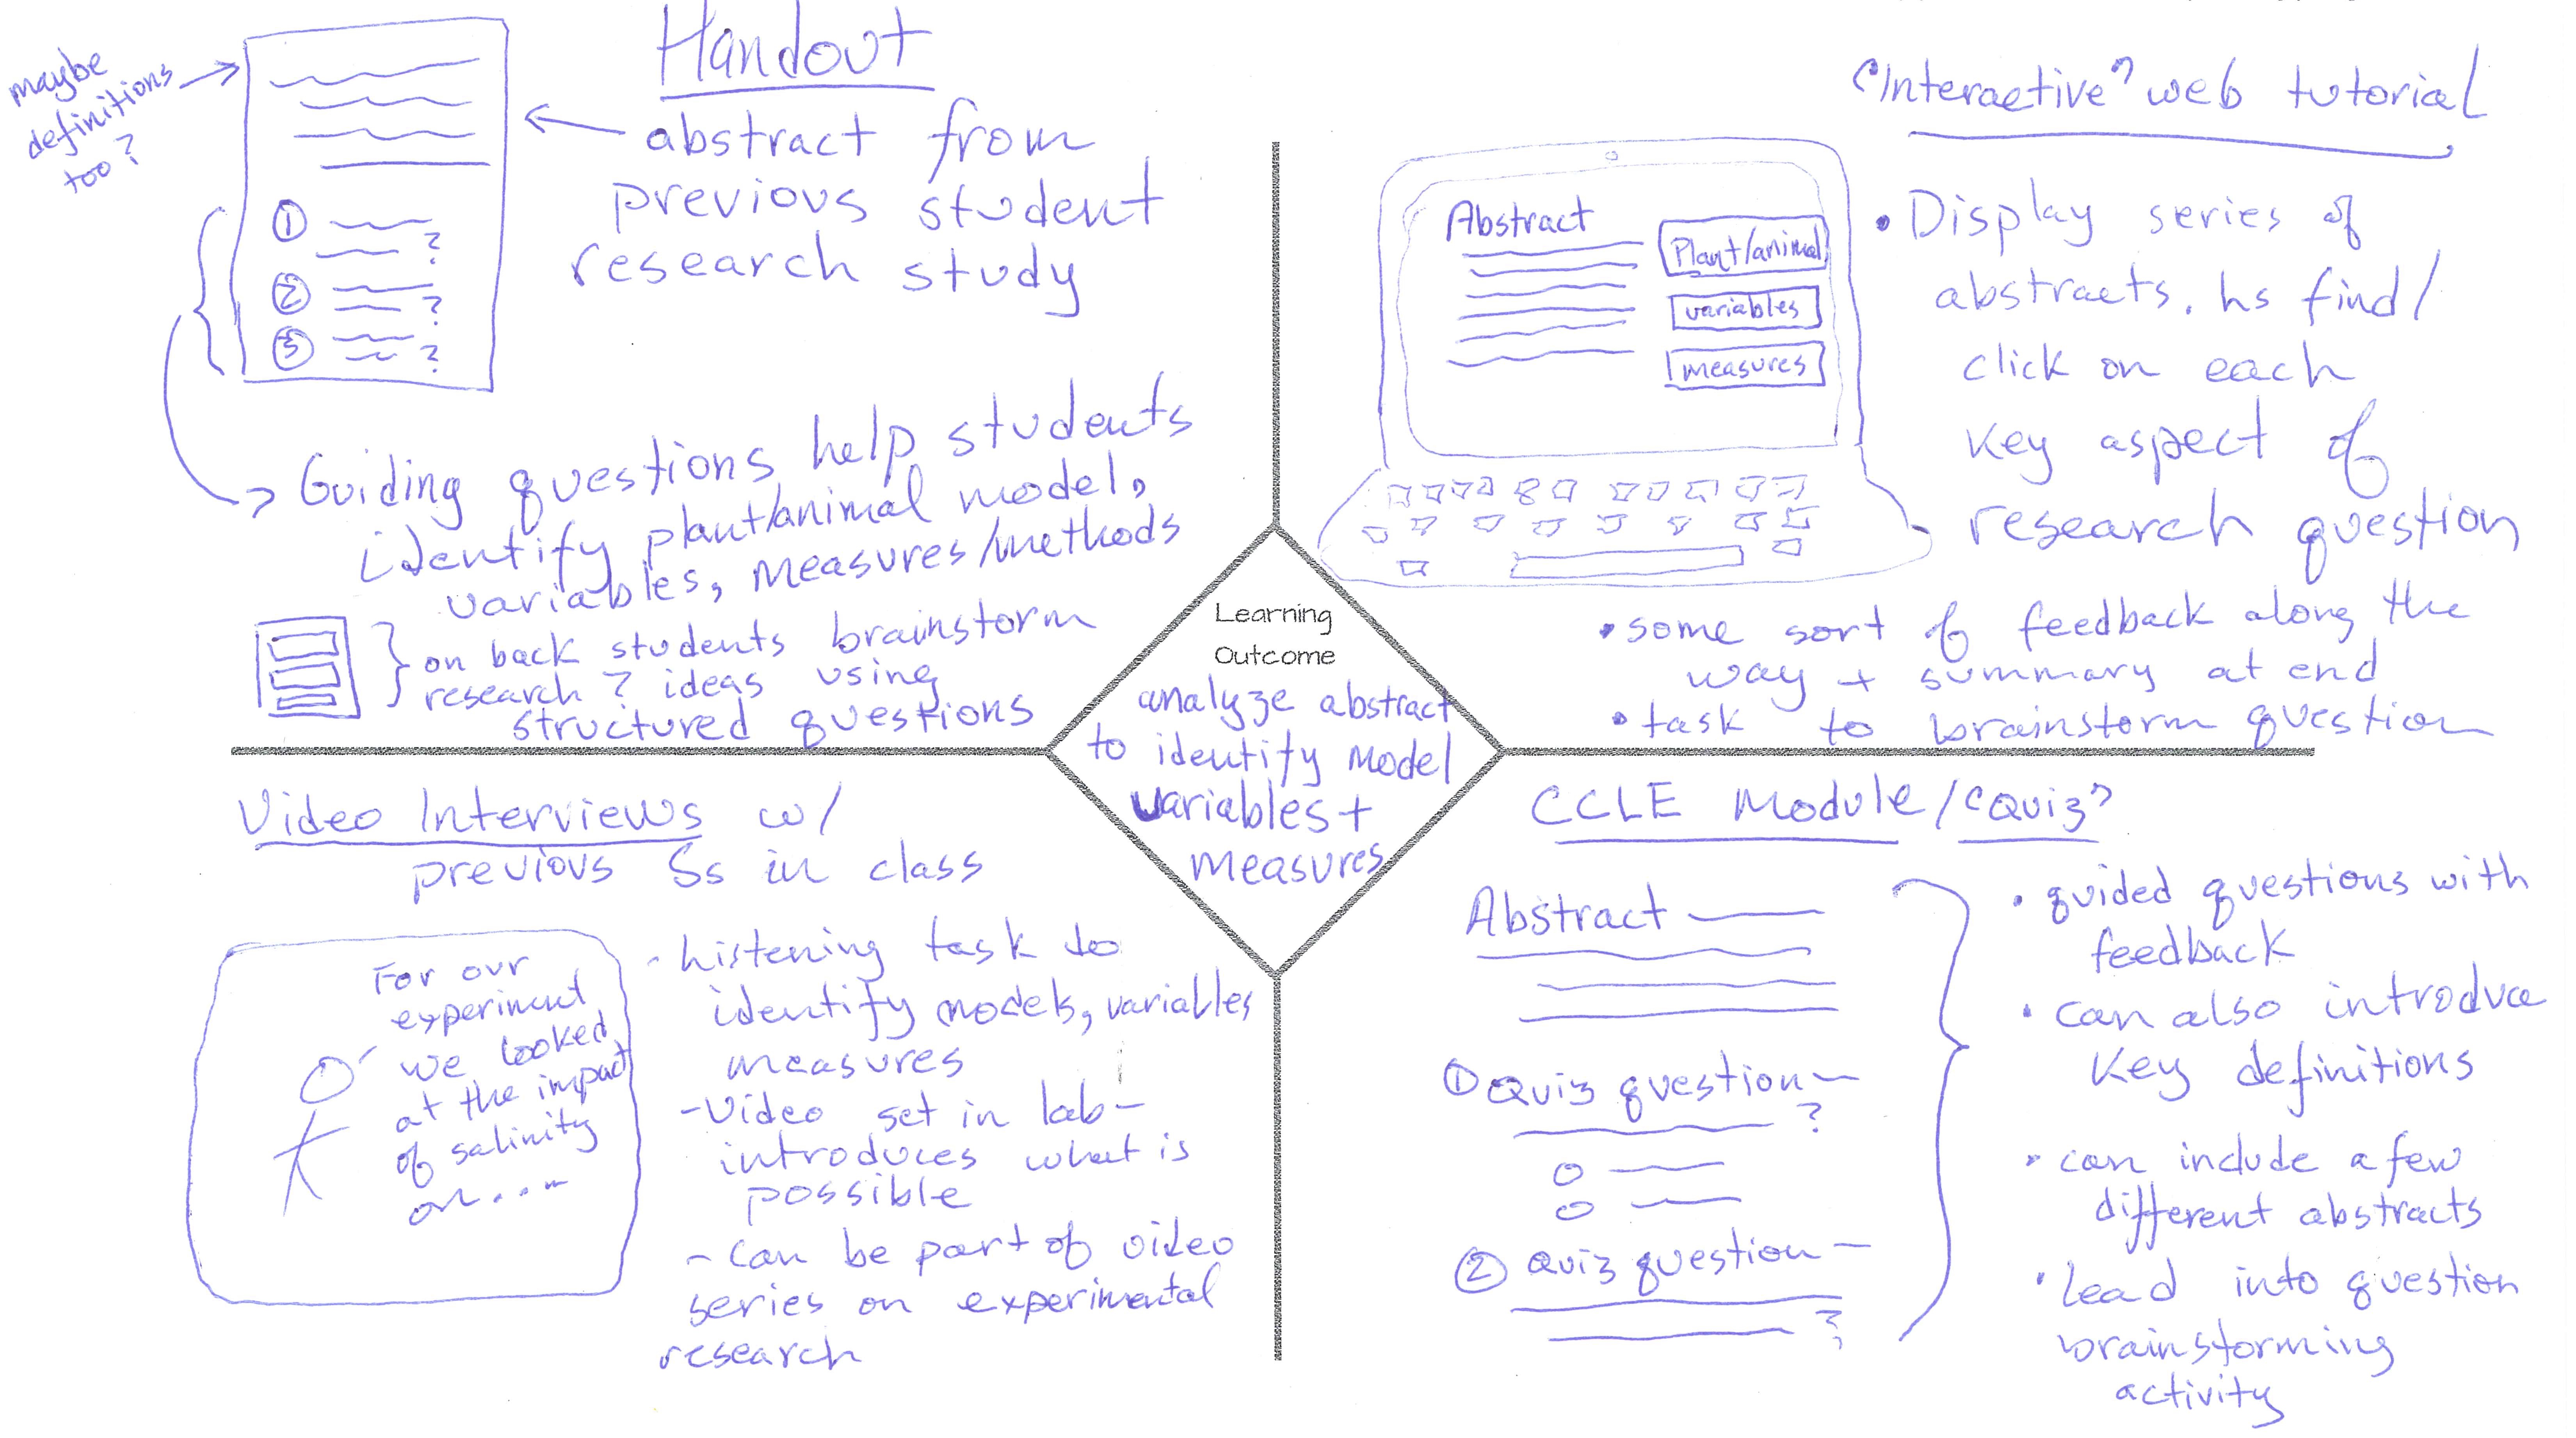 Handout
maybe
definitions
too?
abstract from
previous student
research study
1
?
2
?
3
?
Guiding questions help students
identify plant/animal model,
variables, measures/methods
on back students brainstorm
research ? ideas using
structured questions
"Interactive" web tutorial
Abstract
Plant/animal
variables
measures
• Display series of
abstracts.
find/
click on each
key aspect of
research question
• some sort of feedback along the
way + summary at end
• task to brainstorm question
Learning
Outcome
analyze abstract
to identify model
variables +
measures
Video Interviews w/
previous Ss in class
For our
experiment
we looked
at the impact
of salinity
on....
- Listening task to
identify models, variables
measures
- Video set in lab -
introduces what is
possible
- can be part of video
series on experimental
research
CCLE Module/"Quiz"
Abstract
① Quiz question
?
② Quiz question
?
• guided questions with
feedback
• can also introduce
key definitions
• can include a few
different abstracts
• Lead into question
brainstorming
activity